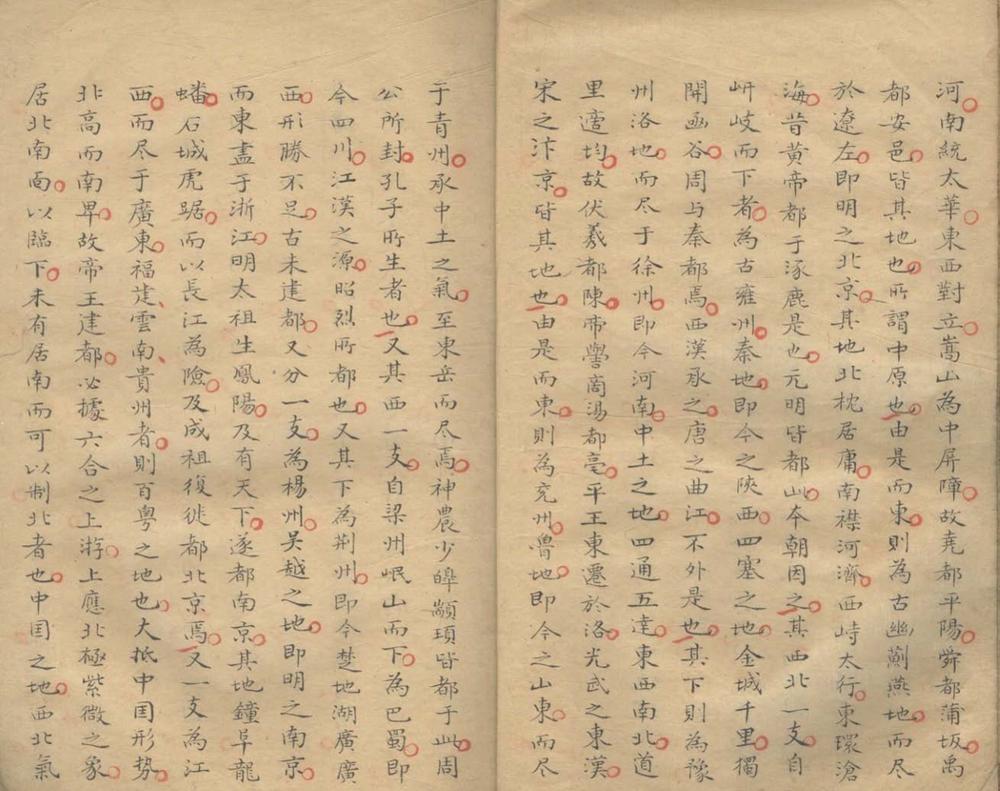 河南統太華東西對立嵩山為中屏障故堯都平陽舜都蒲坂禹
都安邑皆其地也所謂中原也由是而東則為古幽薊燕地而尽
於遼左即明之北京其地北枕居庸南襟河濟西峙太行東環滄
海昔黃帝都于涿鹿是也元明皆都此本朝因之其西北一支自
岍岐而下者為古雍州秦地即今之陝西四塞之地金城千里獨
開函谷周与秦都焉西漢承之唐之曲江不外是也其下則為豫
州洛地而尽于徐州即今河南中土之地四通五達東西南北道
里適均故伏羲都陳帝嚳商湯都亳平王東遷於洛光武之東漢
宋之汴京皆其地也由是而東則為兗州魯地即今之山東而尽
于青州承中土之氣至東岳而尽焉神農少皞顓頊皆都于此周
公所封孔子所生者也又其西一支自梁州岷山而下為巴蜀即
今四川江漢之源昭烈所都也又其下為荆州即今楚地湖廣廣
西形勝不足古未建都又分一支為楊州吳越之地即明之南京
而東盡于浙江明太祖生鳳陽及有天下遂都南京其地鐘阜龍
蟠石城虎踞而以長江為險及成祖復徙都北京焉又一支為江
西而尽于廣東福建雲南貴州者則百粵之地也大抵中国形勢
北高而南畀故帝王建都必據六合之上游上應北極紫微之象
居北南面以臨下未有居南而可以制北者也中国之地西北氣